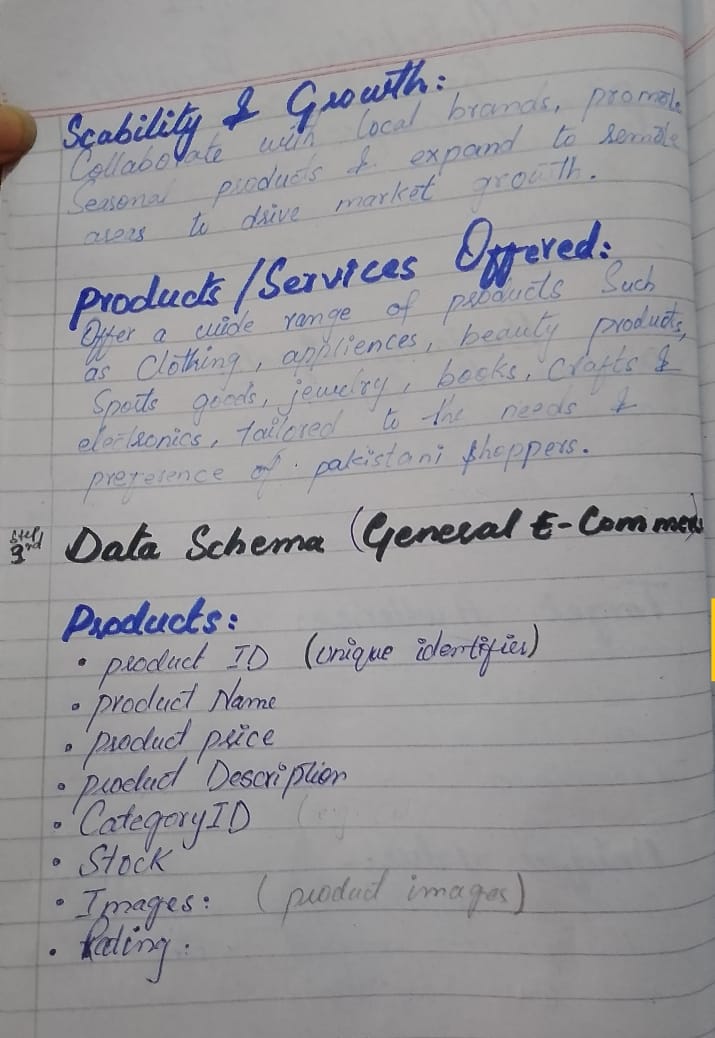 Scability & Growth:
Collaborate with local brands, promote
Seasonal products & expand to remote
areas to drive market growth.
Products/Services Offered:
Offer a wide range of products Such
as Clothing, appliences, beauty products,
Sports goods, jewelry, books, Crafts &
electronics, tailored to the needs &
preference of pakistani shoppers.
Step 3rd Data Schema (General E-Commer
Products:
• product ID (unique identifier)
• product Name
• product price
• product Description
• CategoryID (eg
• Stock
• Images: (product images)
• Rating: